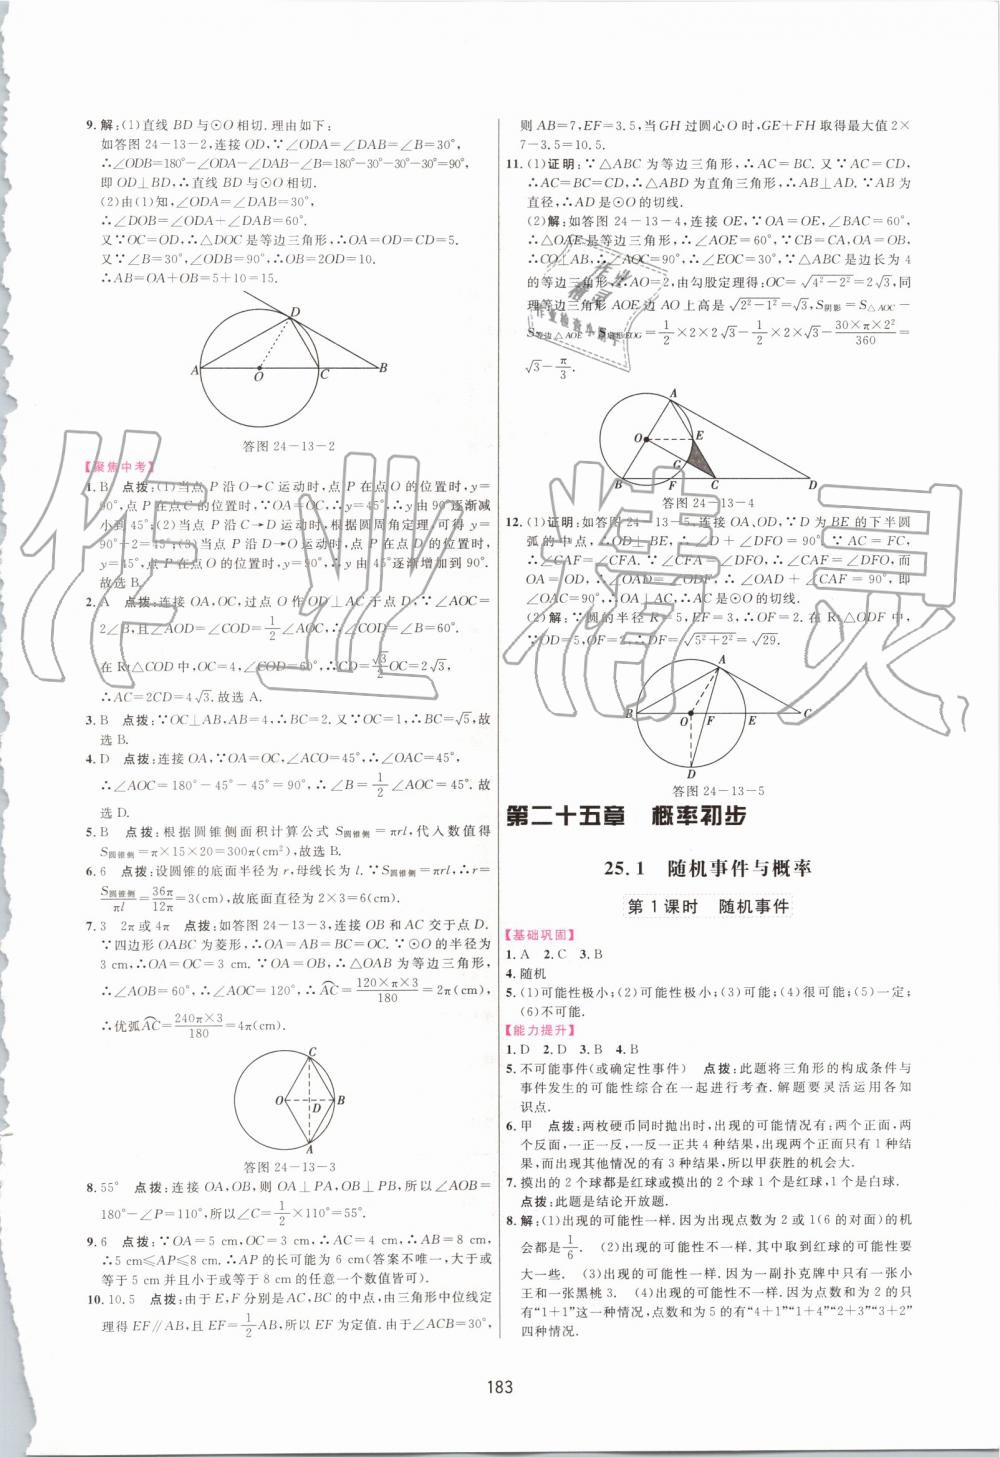 9.解:(1)直线 BD 与⊙O 相切.理由如下:
如答图 24-13-2,连接 OD,∵∠ODA=∠DAB=∠B=30°,
∴∠ODB=180°-∠ODA-∠DAB-∠B=180°-30°-30°-30°=90°,
即 OD⊥BD,∴直线 BD 与⊙O 相切.
(2)由(1)知,∠ODA=∠DAB=30°,
∴∠DOB=∠ODA+∠DAB=60°.
又∵OC=OD,∴△DOC 是等边三角形,∴OA=OD=CD=5.
又∵∠B=30°,∠ODB=90°,∴OB=2OD=10.
∴AB=OA+OB=5+10=15.
D
A O C B
答图 24-13-2
【聚焦中考】
1.B 点拨:(1)当点 P 沿 O→C 运动时,点 P 在点 O 的位置时,y=
90°,点 P 在点 C 的位置时,∵OA=OC,∴y=45°,∴y 由 90°逐渐减
小到 45°;(2)当点 P 沿 C→D 运动时,根据圆周角定理,可得 y=
90°÷2=45°;(3)当点 P 沿 D→O 运动时,点 P 在点 D 的位置时,
y=45°,点 P 在点 O 的位置时,y=90°,∴y 由 45°逐渐增加到 90°.
故选 B.
2.A 点拨:连接 OA,OC,过点 O 作 OD⊥AC 于点 D,∵∠AOC=
2∠B,且∠AOD=∠COD=1/2∠AOC,∴∠COD=∠B=60°;
在 Rt△COD 中,∵OC=4,∠COD=60°,∴CD=√3/2 OC=2√3,
∴AC=2CD=4√3.故选 A.
3.B 点拨:∵OC⊥AB,AB=4,∴BC=2.又∵OC=1,∴BC=√5,故
选 B.
4.D 点拨:连接 OA,∵OA=OC,∠ACO=45°,∴∠OAC=45°,
∴∠AOC=180°-45°-45°=90°,∴∠B=1/2∠AOC=45°.故
选 D.
5.B 点拨:根据圆锥侧面积计算公式 S圆锥侧=πrl,代入数值得
S圆锥侧=π×15×20=300π(cm²),故应选 B.
6.6 点拨:设圆锥的底面半径为 r,母线长为 l.∵S圆锥侧=πrl∴r=
S圆锥侧/πl=36π/12π=3(cm),故底面直径为 2×3=6(cm).
7.3 2π或 4π 点拨:如答图 24-13-3,连接 OB 和 AC 交于点 D.
∵四边形 OABC 为菱形,∴OA=AB=BC=OC.∵⊙O 的半径为
3 cm,∴OA=OC=3 cm.∵OA=OB,∴△OAB 为等边三角形,
∴∠AOB=60°,∴∠AOC=120°,∴AC=120×π×3/180=2π(cm),
∴优弧AC=240π×3/180=4π(cm).
C
O D B
A
答图 24-13-3
8.55° 点拨:连接 OA,OB,则 OA⊥PA,OB⊥PB,所以∠AOB=
180°-∠P=110°,所以∠C=1/2×110°=55°.
9.6 点拨:∵OA=5 cm,OC=3 cm,∴AC=4 cm,∴AB=8 cm,
∴5 cm≤AP≤8 cm.∴AP 的长可能为 6 cm(答案不唯一,大于或
等于 5 cm 并且小于或等于 8 cm 的任意一个数值皆可).
10.10.5 点拨:由于 E,F 分别是 AC,BC 的中点,由三角形中位线定
理得 EF∥AB,且 EF=1/2AB,所以 EF 为定值.由于∠ACB=30°,
则 AB=7,EF=3.5,当 GH 过圆心 O 时,GE+FH 取得最大值 2×
7-3.5=10.5.
11.(1)证明:∵△ABC 为等边三角形,∴AC=BC.又∵AC=CD,
∴AC=BC=CD,∴△ABD 为直角三角形,∴AB⊥AD.∵AB 为
直径,∴AD 是⊙O 的切线.
(2)解:如答图 24-13-4,连接 OE,∵OA=OE,∠BAC=60°,
∴△OAE 是等边三角形,∴∠AOE=60°,∵CB=CA,OA=OB,
∴CO⊥AB,∴∠AOC=90°,∴∠EOC=30°,∵△ABC 是边长为 4
的等边三角形,∴AO=2,由勾股定理得:OC=√4²-2²=2√3,同
理等边三角形 AOE 边 AO 上高是√2²-1²=√3,S阴影=S△AOC-
S等边△AOE-S扇形EOG=1/2×2×2√3-1/2×2×√3-30×π×2²/360=
√3-π/3.
A
O E
G
B F C D
答图 24-13-4
12.(1)证明:如答图 24-13-5,连接 OA,OD,∵D 为 BE 的下半圆
弧的中点,∴OD⊥BE,∴∠D+∠DFO=90°.∵AC=FC,
∴∠CAF=∠CFA.∵∠CFA=∠DFO,∴∠CAF=∠DFO,而
OA=OD,∴∠OAD=∠ODF,∴∠OAD+∠CAF=90°,即
∠OAC=90°,∴OA⊥AC,∴AC 是⊙O 的切线.
(2)解:∵圆的半径 R=5,EF=3,∴OF=2.在 Rt△ODF 中,
∵OD=5,OF=2,∴DF=√5²+2²=√29.
A
B O F E C
D
答图 24-13-5
第二十五章 概率初步
25.1 随机事件与概率
第 1 课时 随机事件
【基础巩固】
1.A 2.C 3.B
4.随机
5.(1)可能性极小;(2)可能性极大;(3)可能;(4)很可能;(5)一定;
(6)不可能.
【能力提升】
1.D 2.D 3.B 4.B
5.不可能事件(或确定性事件) 点拨:此题将三角形的构成条件与
事件发生的可能性综合在一起进行考查.解题要灵活运用各知
识点.
6.甲 点拨:两枚硬币同时抛出时,出现的可能情况有:两个正面,两
个反面,一正一反,一反一正共 4 种结果,出现两个正面只有 1 种结
果,而出现其他情况的有 3 种结果,所以甲获胜的机会小.
7.摸出的 2 个球都是红球或摸出的 2 个球 1 个是红球,1 个是白球.
点拨:此题是结论开放题.
8.解:(1)出现的可能性一样.因为出现点数为 2 或 1(6 的对面)的机
会都是1/6. (2)出现的可能性不一样.其中取到红球的可能性要
大一些. (3)出现的可能性一样.因为一副扑克牌中只有一张小
王和一张黑桃 3. (4)出现的可能性不一样.因为点数和为 2 的只
有“1+1”这一种情况,点数和为 5 的有“4+1”“1+4”“2+3”“3+2”
四种情况.
183
作业精灵
作业
精灵
作业检查小帮手